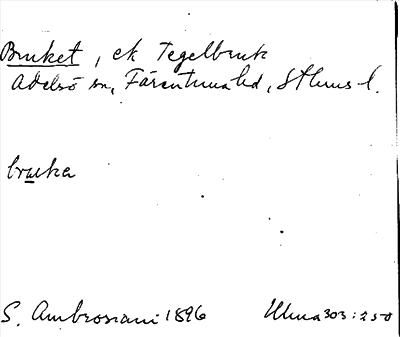 Bruket, ek Tegelbruk
Adelsö sn, Färentuna hd, Sthms l.
bruka
S. Ambrosiani 1896 Ulma 303:250